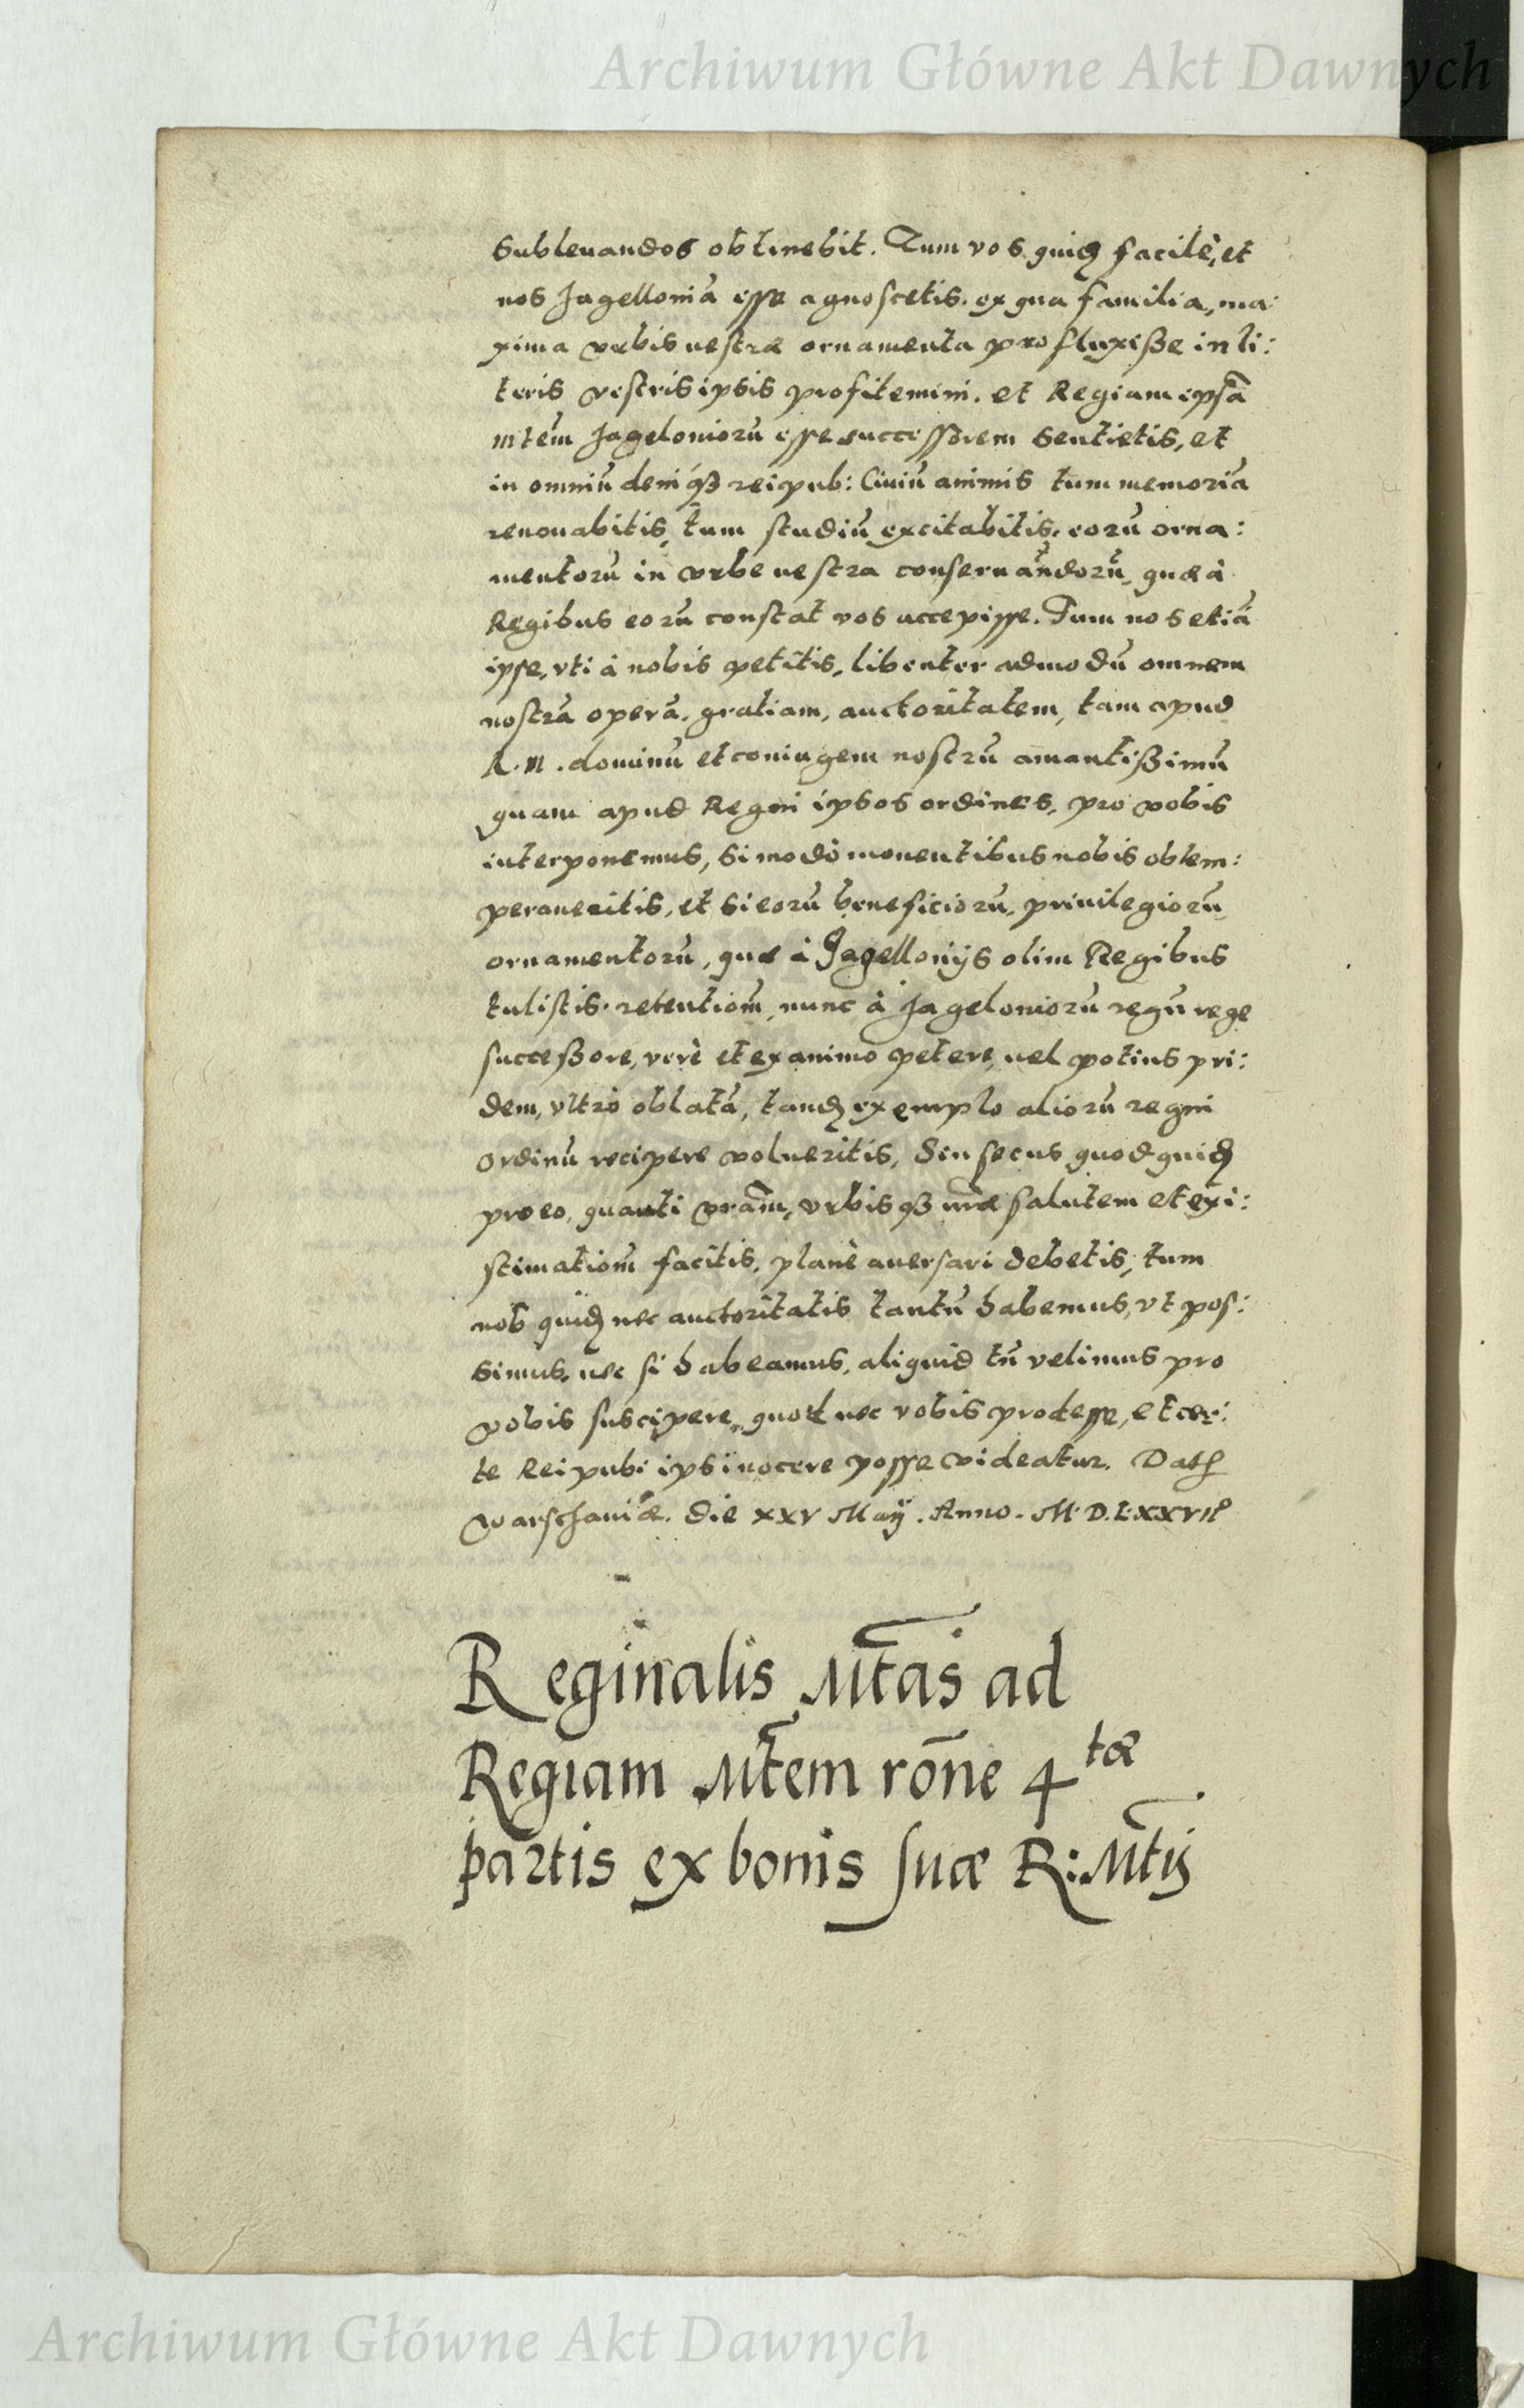 Archiwum Główne Akt Dawnych
Subleuandos obtinebit. Tum vos quidẽ facilè, et
nos Jagelloniã esse agnoscetis. ex qua familia, ma:
xima vrbis uestræ ornamenta profluxiße in li:
teris vestris ipsis profitemini. et Regiam ipsã
mtẽm Jageloniorũ esse successorem sentietis, et
in omniũ deniqß reipub: Ciuiũ animis tum memoriã
renouabitis, tum studiũ excitabitis. eorũ orna:
mentorũ in vrbe uestra conseruandorũ, quæ à
Regibus eorũ constat vos accepisse. Tum nos etiã
ipse, vti à nobis petitis, libenter admodũ omnem
nostrã operã. gratiam, auctoritatem, tam apud
R. M. dominũ et coniugem nostrũ amantißimũ
quam apud Regni ipsos ordines, pro vobis
interponemus, si modò monentibus nobis obtem:
peraueritis, et si eorũ beneficiorũ, priuilegiorũ
ornamentorũ, quæ à Jagellonijs olim Regibus
tulistis. retentiom̃, nunc à Jagelonioru regũ rege
succeßore, verè et ex animo petere, uel potius pri:
dem, vltrò oblatã, tandẽ exemplo aliorũ regni
ordinũ recipere volueritis, Sin secus quod quidẽ
pro eo, quanti vram̃, vrbisqß uræ̃ salutem et exi:
stimatiom̃ facitis, planè auersari debetis, tum
nos quidẽ nec auctoritatis tantũ habemus, vt pos:
simus, nec si habeamus, aliquid tñ velimus pro
vobis suscipere, quod nec vobis prodesse, et cer:
te Reipub: ipsi nocere posse videatur. Dat
Warschauiæ. die XXV Maÿ. Anno. M. D. LXXVII
Reginalis Mtas ad
Regiam Mtem rõne 4tæ
partis ex bonis suæ R: Mtis
Archiwum Główne Akt Dawnych